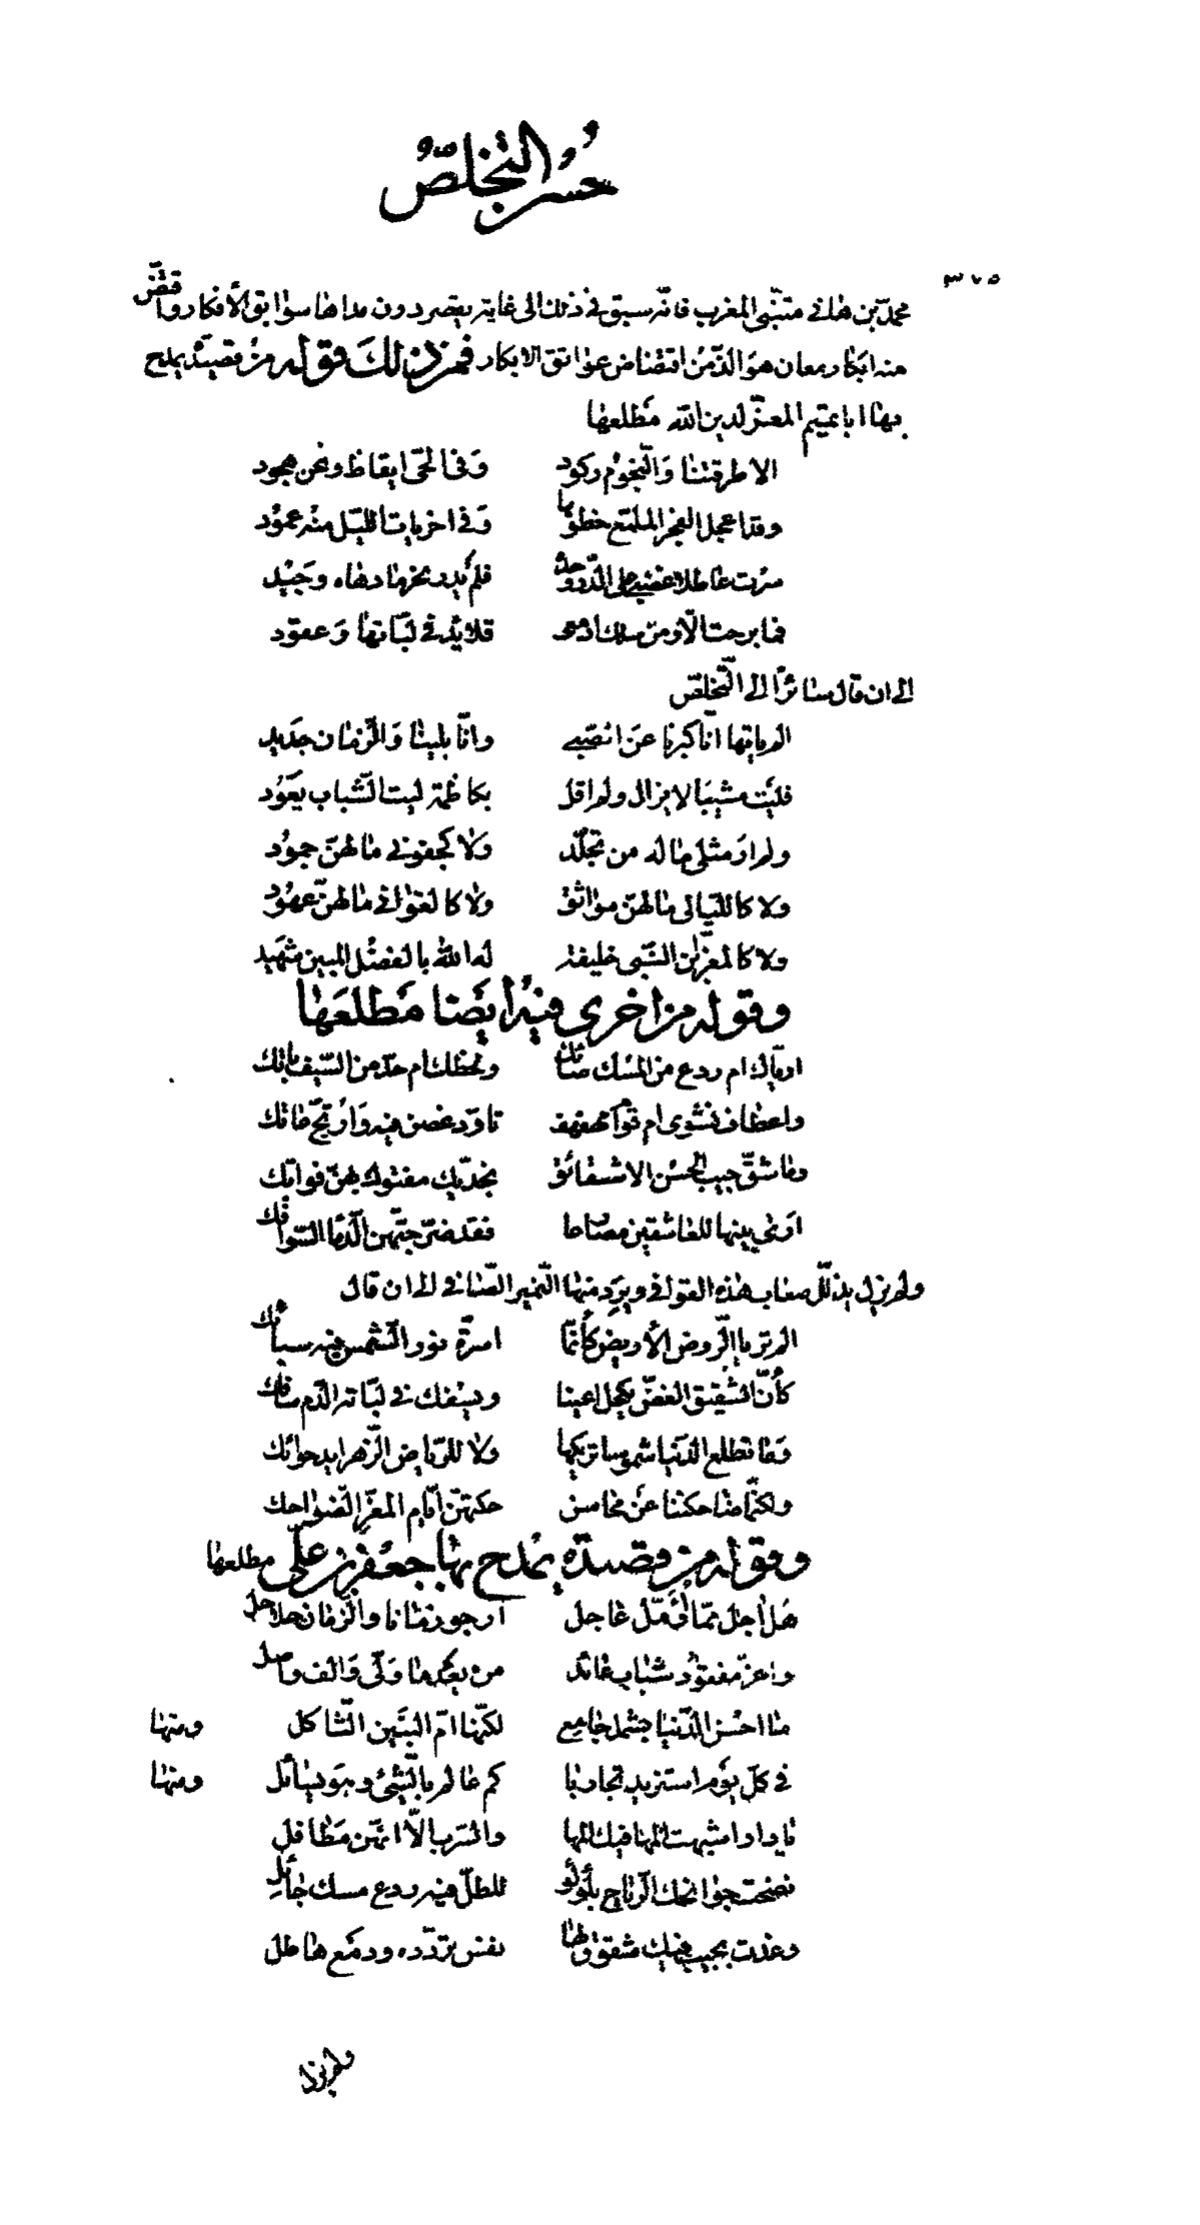 حسن التخلص
٣٧٥
محمد بن هانی متنبی المغرب فانه سبق فی ذلك الی غایة یقصر دون مداها سوابق الأفكار واقتض
منه ابكار معان هو الذ من اقتضاض عواتق الابكار فمن ذلك قوله من قصیدة یمدح
بها ابا تمیم المعز لدین الله مطلعها
الا طرقتنا والنجوم ركود وفی الحی ایقاظ ونحن هجود
وقد اعجل الفجر الملمع خطوها وفی اخریات اللیل منه عمود
سرت عاطلا غضبی علی الدر وحده فلم یدر نحر ما دهاه وجید
فما برحت الا ومن سلك ادمعی قلائد فی لباتها وعقود
الی ان قال سائرا الی التخلص
الم یاتها انا كبرنا عن الصبی وانا بلینا والزمان جدید
فلیت مشیبا لا یزال ولم اقل بكاظمة لیت الشباب یعود
ولم ار مثلی ماله من تجلد ولا كجفونی ما لهن جمود
ولا كاللیالی ما لهن مواثق ولا كالغوانی ما لهن عهود
ولا كالمعز ابن النبی خلیفة له الله بالفضل المبین شهید
وقوله من اخری فیه أیضا مطلعها
اریاك ام ردع من المسك صائك ولحظك ام حد من السیف باتك
واعطاف نشوی ام قوام مهفهف تاود غصن فیه وارتج عانك
وما شق جیب الحسن الا شقائق بخدیك مفتوك بهن فواتك
اری بینها للعاشقین مصارعا فقد ضرجتهن الدما السوافك
ولم یزل یذلل صعاب هذه القوافی ویرد منها النمیر الصافی الی ان قال
الم تریا الروض الأریض كأنما اسرة نور الشمس فیه سبائك
كأن الشقیق الغض یكحل اعینا ویسفك فی لباته الدم سافك
وما تطلع الدنیا شموسا تریكها ولا للریاض الزهر اید حوائك
ولكنما ضاحكننا عن محاسن حكتهن ایام المعز الضواحك
وقوله من قصیدة یمدح بها جعفر بن علی مطلعها
هل آجل مما اؤمل عاجل ارجو زمانا والزمان حلاحل
واعز مفقود شباب عائد من بعد ما ولی والف واصل
ما احسن الدنیا بشمل جامع لكنها ام البنین الثاكل ومنها
فی كل یوم استزید تجاربا كم عالم بالشیء وهو یسائل ومنها
یا دار اشبهت المها فیك المها والسرب الا انهن مطافل
نضحت جوانحك الریاح بلؤلؤ للطل فیه ردع مسك جائل
وغدت بجیب فیك مشقوق لها نفس تردده ودمع هاطل
ولم یزل